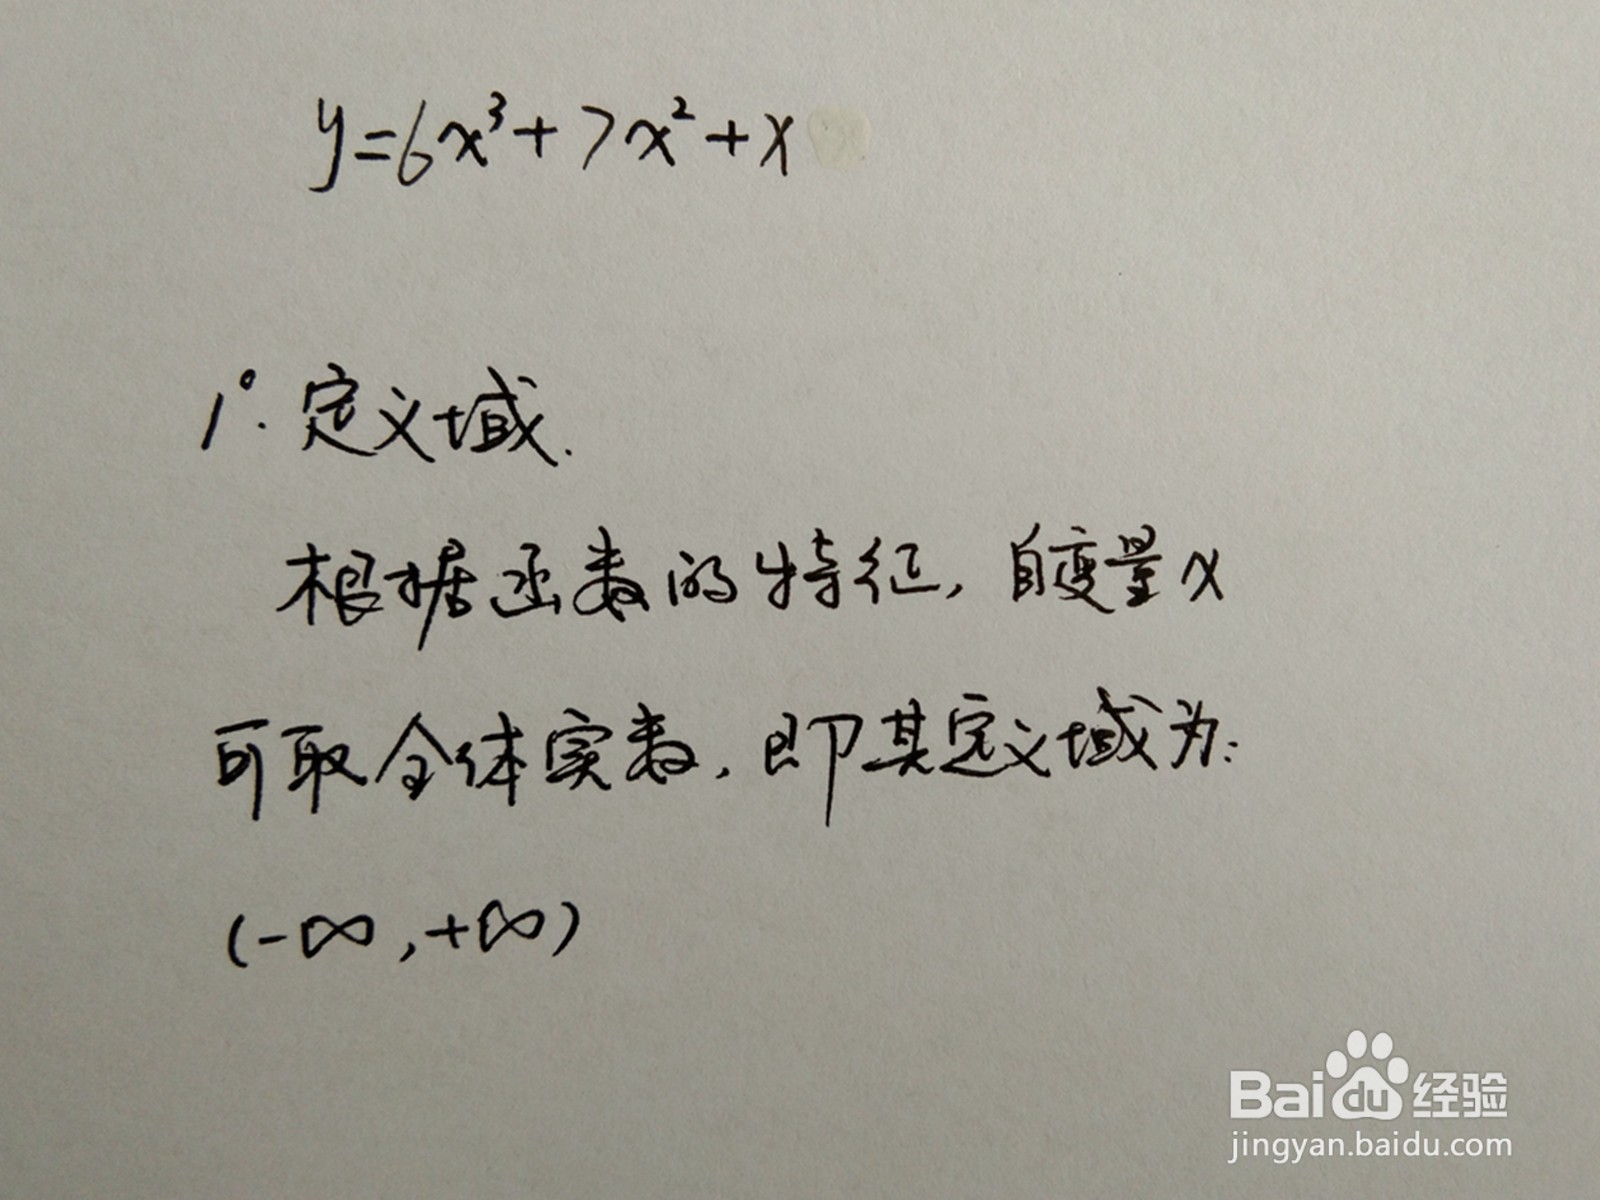 y=6x³+7x²+x
1°.定义域.
根据函数的特征,自变量x
可取全体实数,即其定义域为:
(-∞,+∞)
Bai du 经验
jingyan.baidu.com